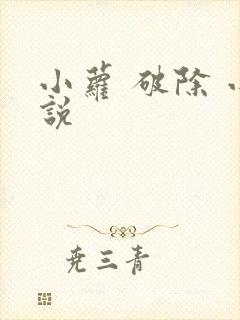 小蘿 破除
說
尭三青